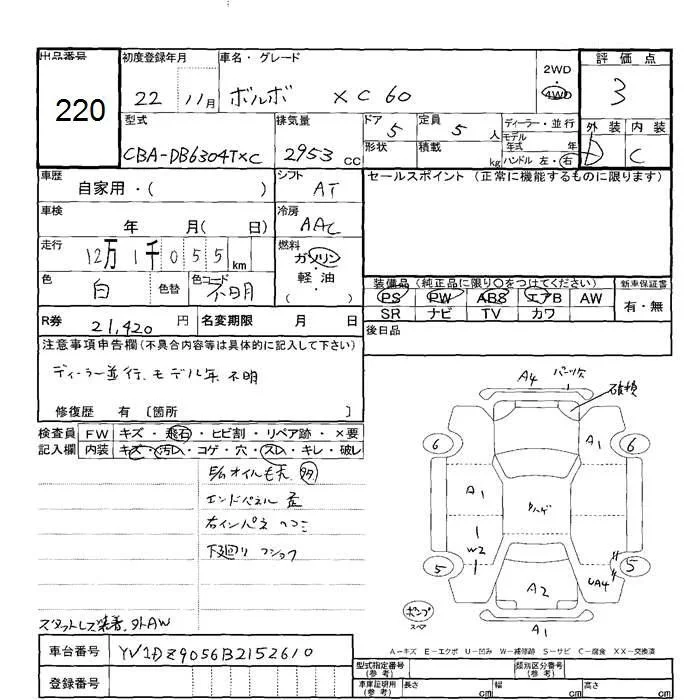 出品番号 初度登録年月 車名・グレード 評価点
220 22 11月 ボルボ XC60 2WD 4WD 3
型式 排気量 ドア 5 定員 5人 ディーラー・並行 外装 内装
CBA-DB6304TXC 2953cc 形状 積載 kg モデル年式 年 ハンドル 左・右 D C
車歴 自家用・( ) シフト AT セールスポイント(正常に機能するものに限ります)
車検 年 月( 日) 冷房 AAC
走行 12万1千055km 燃料 ガソリン
色 白 色替 色コード 不明 軽・油 ( )
装備品(純正品に限り○をつけてください) 新車保証書
PS PW ABS エアB AW 有・無
SR ナビ TV カワ
R券 21,420円 名変期限 月 日 後日品
注意事項申告欄(不具合内容等は具体的に記入して下さい)
ディーラー並行、モデル年不明
修復歴 有 〔箇所 〕
検査員 FW キズ・飛石・ヒビ割・リペア跡・×要
記入欄 内装 キズ・汚れ・コゲ・穴・スレ・キレ・破レ
オイルもれ 多
エンドパネル
右インパネ
下廻り
スタットレス装着、外AW
A4 パーツ欠 破損
6 A1 6
A1
1
W2
1
5 UA4 5
A2
スペア
A1
A−キズ E−エクボ U−凹み W−補修跡 S−サビ C−腐食 XX−交換済
車台番号 YV1DZ9056B2152610
登録番号
型式指定番号(参考) 類別区分番号(参考)
車庫証明用(参考) 長さ cm 幅 cm 高さ cm